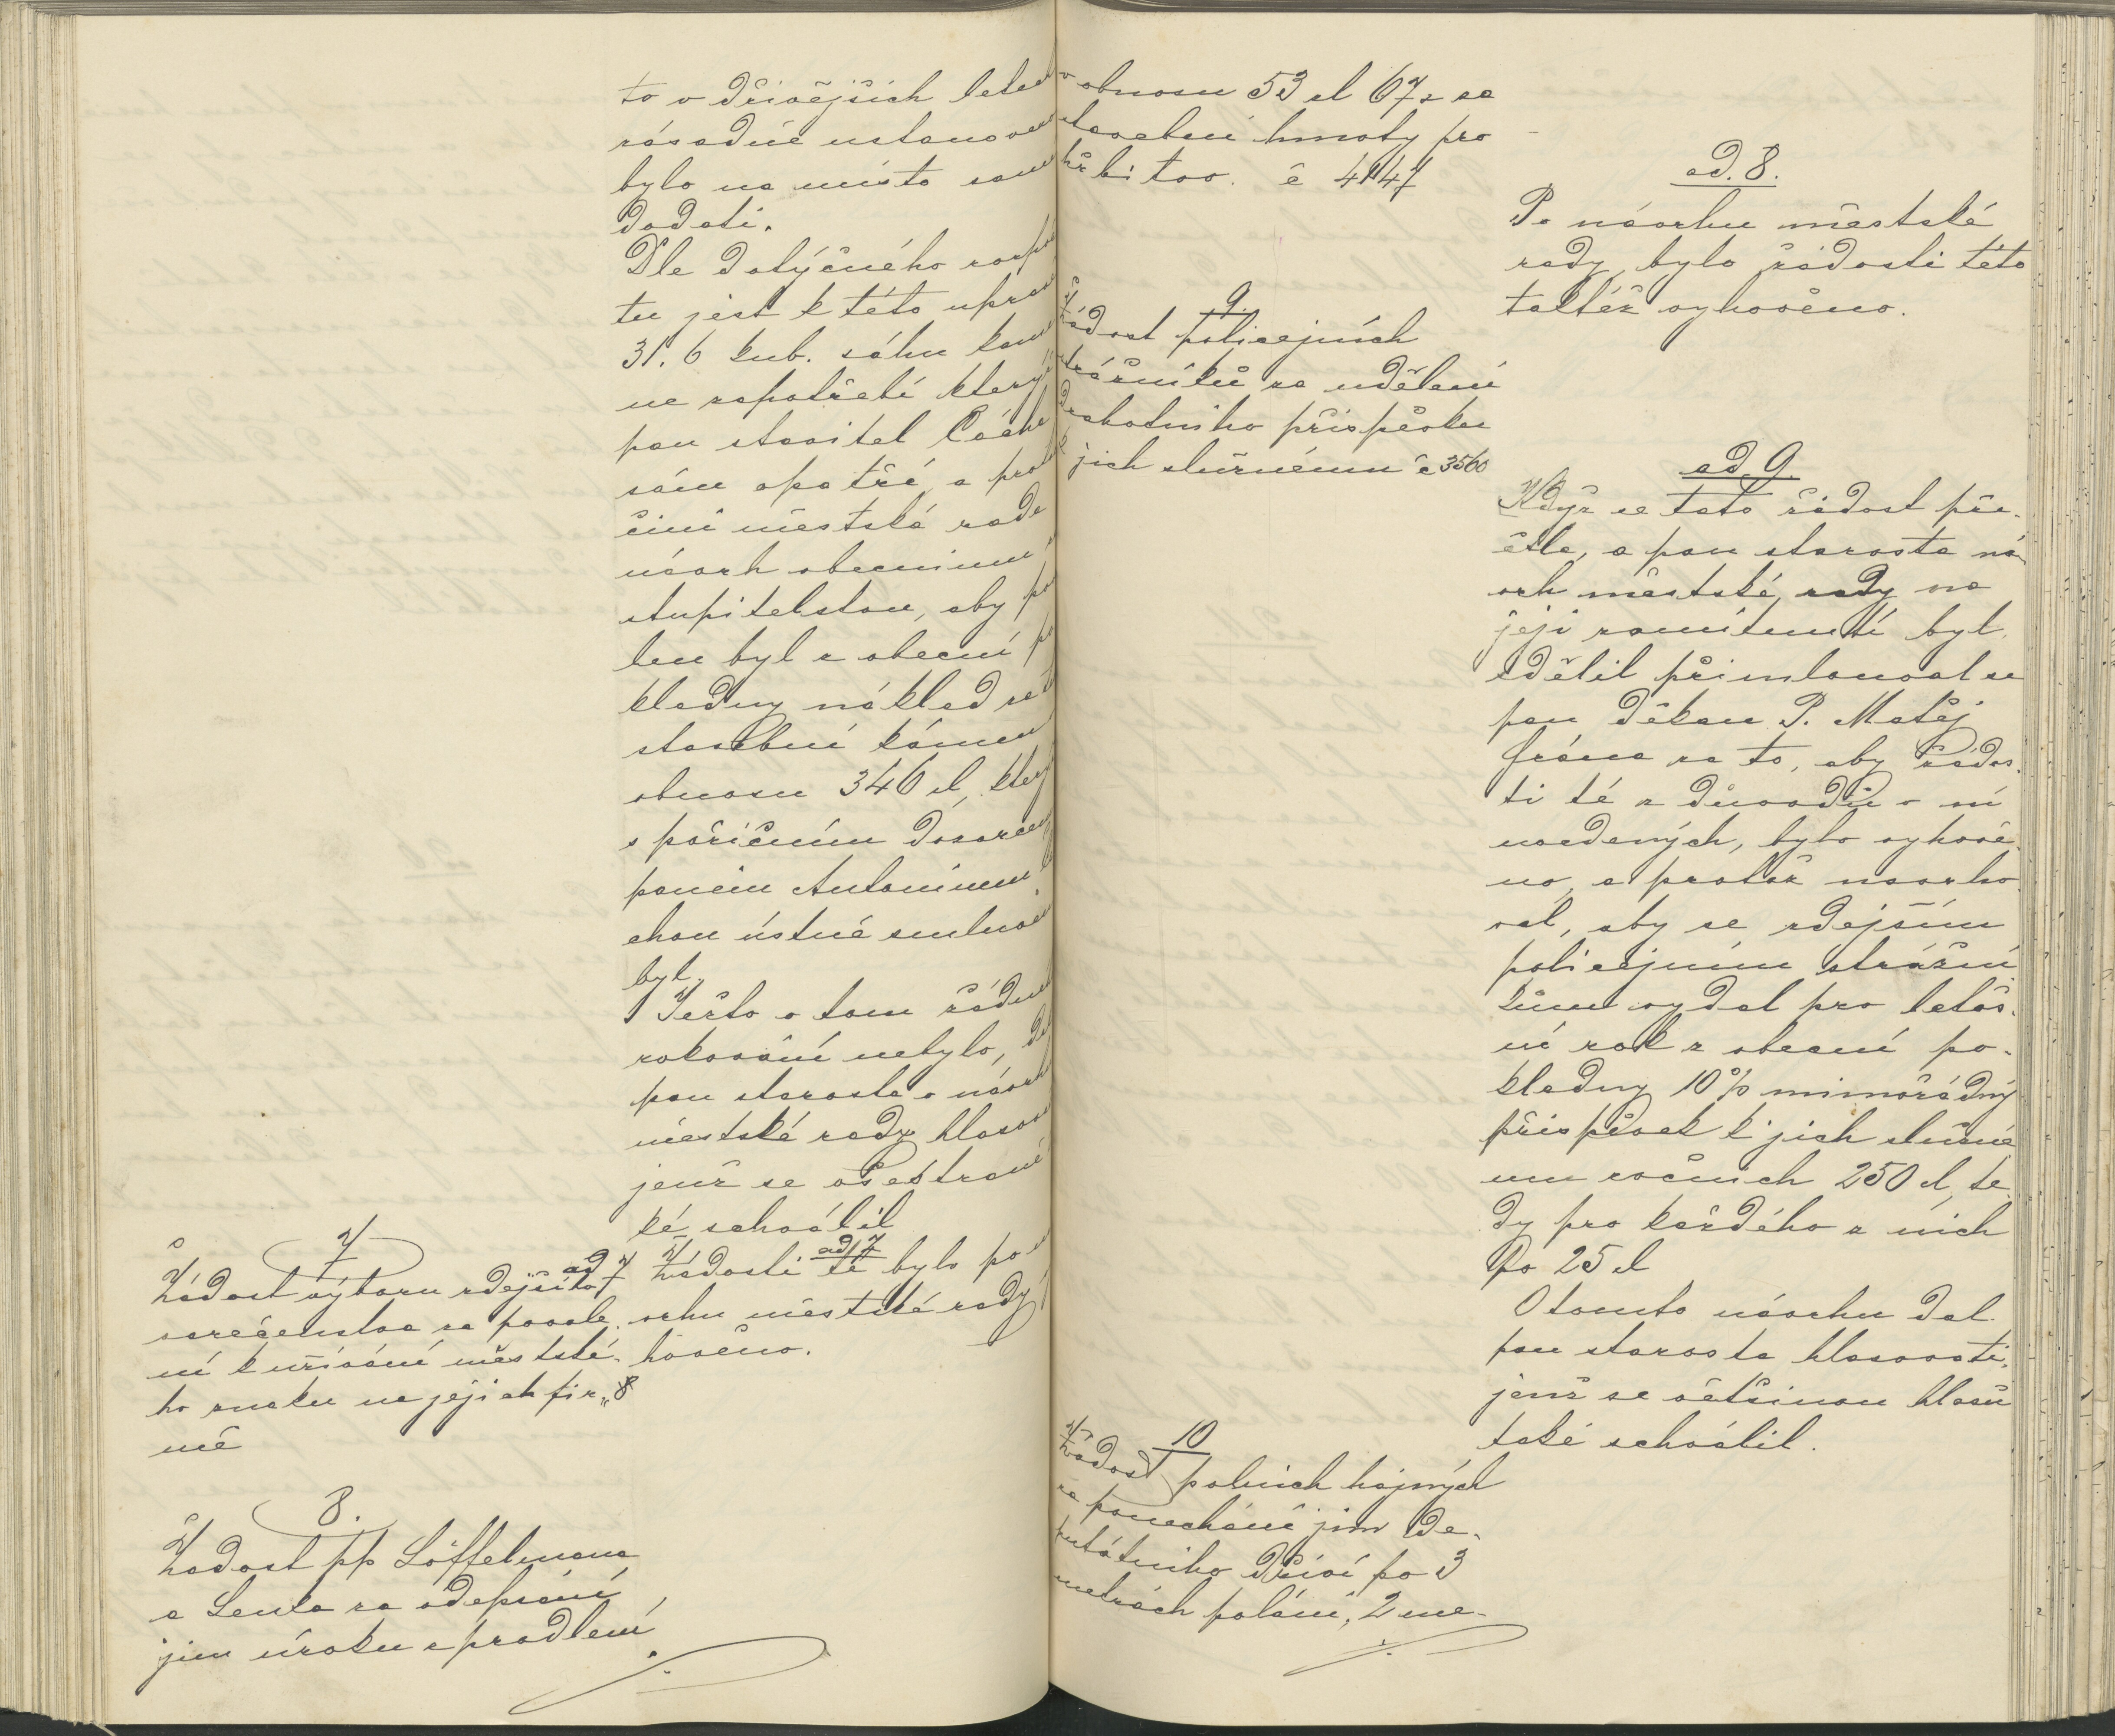 to v dřívějších letech
zásadně ustanoveno
bylo na místo samé
dodati.
Dle dotýčného rozpoč
tu jest k této úpravě
31.6 kub. sáhu kame
ne zapotřebí který
pan stavitel
sám opatří, a proto
činí městská rada
návrh obecnímu
stupitelstvu, aby po
len byl z obecní po
kladny náklad za
stavební kámen
obnosu 346 zl, který
s poříčním dozorcem
panem Antonínem
ústně smluven
byl.
Ježto o tom žádné
rokování nebylo, dal
pan starosta o návrhu
městské rady hlasovat
jenž se všestranně
ké schválil
7
Žádost výboru zdejšího
ad 7
společenstva za povole
ní k užívání městské-
ho znaku na jejich fir„
mě
ad 7
Žádosti té bylo po ná
vrhu městské rady
hověno.
8.
Žadost pp Löffelmana
a Lenka za odepsání
jim úroku z prodlení
v obnosu 53 zl 67 z za
stavební hmoty pro
hřbitov. č 4147
9.
Žádost policejních
strážníků za udělení
drahotního příspěvku
k jich služnému č 3560
10
Žádost polních hajných
za ponechání jim de-
putátního dříví po 3
metrách polání, 2 me-
ad. 8.
Po návrhu městské
rady bylo žádosti této
taktéž vyhověno.
ad 9.
Když se tato žádost pře-
četla, a pan starosta ná-
vrh městské rady na
její zamítnutí byl
sdělil přimlouval se
pan děkan P. Matěj
Frána za to, aby žádos-
ti té z důvodů v ní
uvedených, bylo vyhově-
no, a protož navrho
val, aby se zdejším
policejním strážní
kům vydal pro letoš-
ní rok z obecní po-
kladny 10% mimořádný
příspěvek k jich služné
mu ročních 250 zl, te
dy pro každého z nich
po 25 zl
O tomto návrhu dal
pan starosta hlasovati,
jenž se většinou hlasů
také schválil.